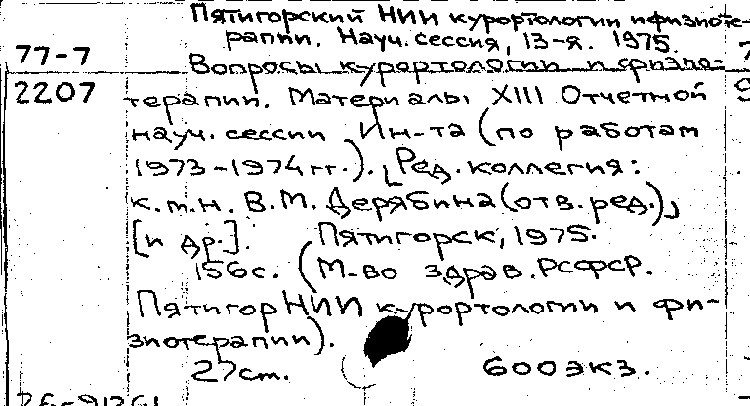 Пятигорский НИИ курортологии и физиоте-
рапии. Науч. сессия, 13-я. 1975.
77-7
Вопросы курортологии и физио-
2207
терапии. Материалы XIII Отчетной
науч. сессии Ин-та (по работам
1973-1974 гг.). [Ред. коллегия:
к.м.н. В.М. Дерябина (отв. ред.),]
[и др.]. Пятигорск, 1975.
156с. (М-во здрав. РСФСР.
Пятигор НИИ курортологии и фи-
зиотерапии).
27см. 600экз.